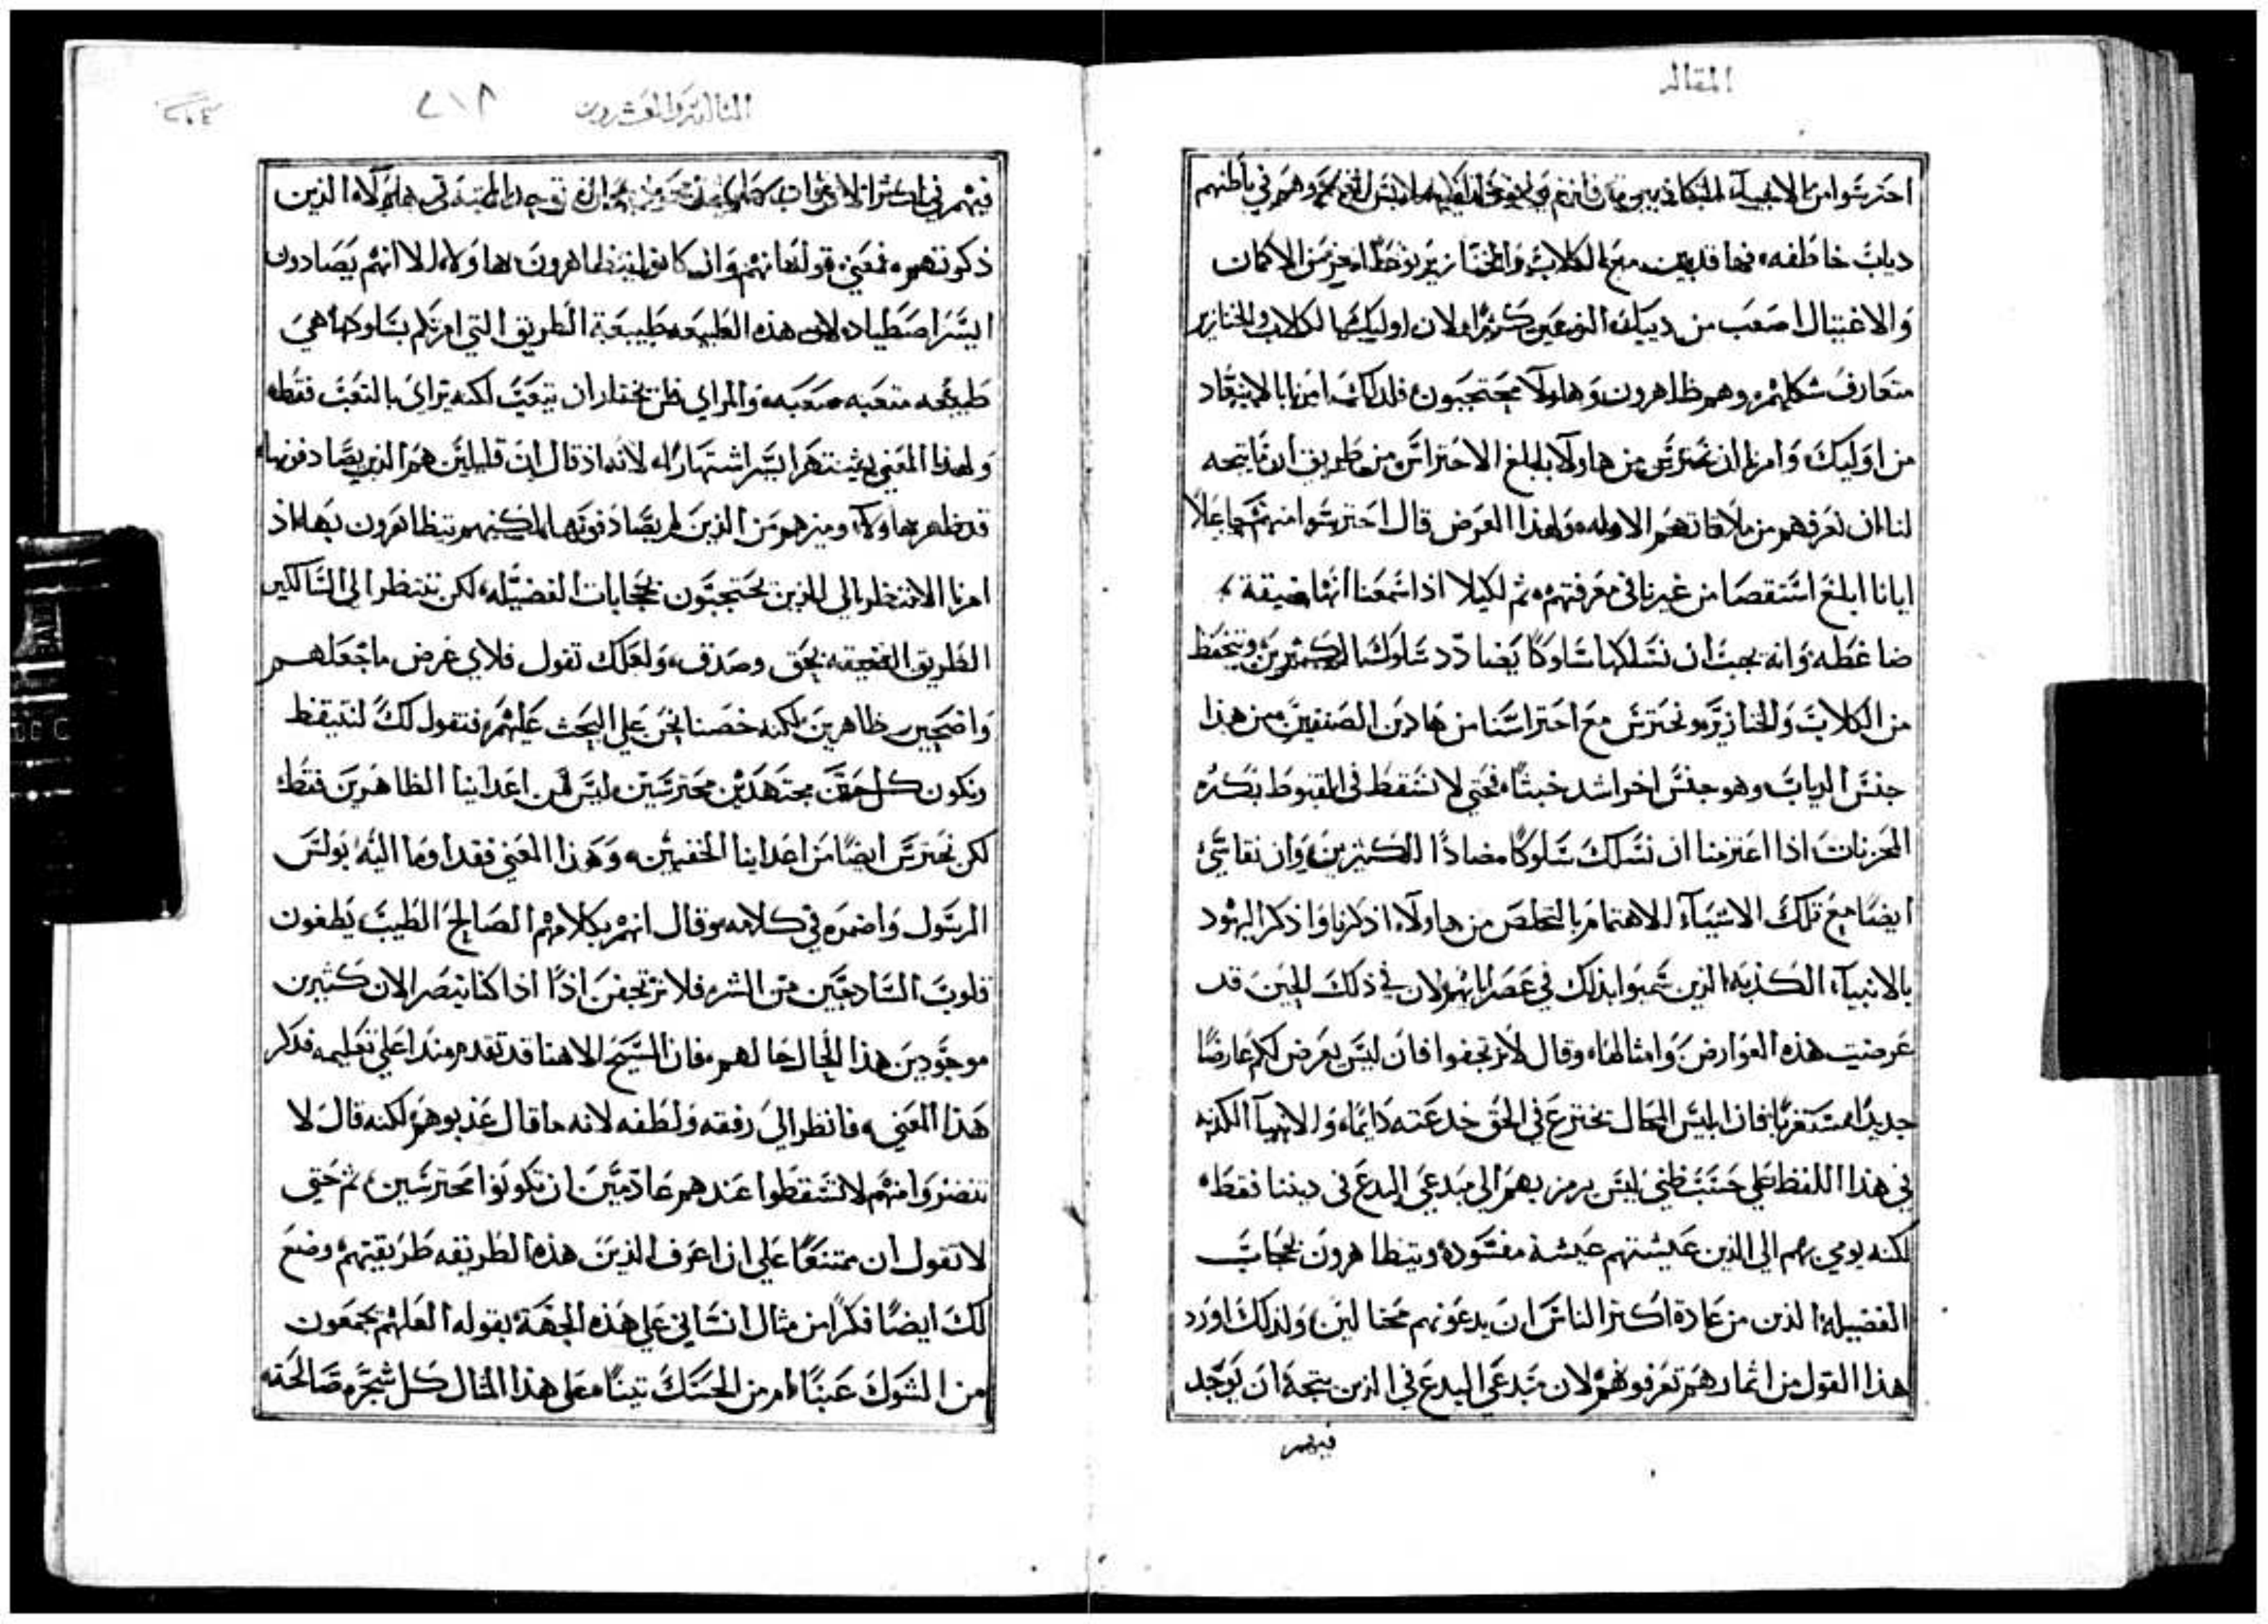 المقاله
احترسوا من الانبيآء الكاذبين فانهم وهم في باطنهم
دياب خاطفه، فها قد بين مع الكلاب والخنازير نوعًا اخر من الاكمان
والاغتيال اصعب من دينك النوعين كثيرًا، لان اوليك الكلاب والخنازير
متعارف شكلهم، وهم ظاهرون، وهاولآ محتجبون، فلذلك امرنا بالابتعاد
من اوليك، وامرنا ان نحترس من هاولآ بابلغ الاحتراس من طريق انه ما يتجه
لنا ان نعرفهم من ملاقاتهم الاوله، ولهذا الغرض قال احترسوا منهم جاعلًا
ايانا ابلغ استقصا من غيرنا في معرفتهم، ثم لكيلا اذا سمعنا انها ضيقة،
ضاغطه، وانه يجب ان نسلكها سلوكًا يضادد سلوك الكثيرين، ونتحفظ
من الكلاب والخنازير، ونحترس مع احتراسنا من هادين الصنفين من هذا
جنس الدياب، وهو جنس اخر اشد خبثًا، فحتى لا نسقط في القنوط بكثره
المحزنات اذا اعتزمنا ان نسلك سلوكًا مضادًا للكثيرين، وان نقاسي
ايضًا مع تلك الاشيآء الاهتمام بالتخلص من هاولآء، اذكرنا واذكر اليهود
بالانبيآء الكذبه، الذين سموا بذلك في عصر ابائهم، لان في ذلك الحين قد
عرضت هذه العوارض وامثالها، وقال لا ترتجفوا فان ليس يعرض لكم عارضًا
جديدًا مستغربًا، فان ابليس المحال تخترع في الحق خدعته دايمًا، والانبيآ الكذبه
في هذا اللفظ على حسب ظني ليس يرمز بهم الى مبدعي البدع في ديننا فقط،
لكنه يومي بهم الي الذين عيشتهم عيشة مفسوده ويتظاهرون بحجاب
الفضيله الذين من عادة اكثر الناس ان يدعونهم مختالين، ولذلك اورد
هذا القول، من اثمارهم تعرفونهم، لان مبدعي البدع في الذين يتجه ان يوجد
فيهم
الثالثة والعشرون
٢١٨
٢٠٤
فيهم في اكثر الاوقات هاولآء الذين
ذكرتهم، فمعني قولها انهم وان كانوا يتظاهرون هاولآء الا انهم يصادون
ايسر اصطياد، لان هذه الطبيعه طبيعة الطريق التي امرتكم بسلوكها هي
طبيعه متعبه صعبه، والمراي فلن يختار ان يتعب لكنه يراي بالتعب فقط،
ولهذا المعني يشتهر ايسر اشتهار، لانه اذ قال ان قليلين هم الذين يصادفونها،
قد ظهر هاولآء وميزهم من الذين لم يصادفونها لكنهم يتظاهرون بها، اذ
امرنا الا ننتظر الى الذين يحتجبون بحجابات الفضيله، لكن ننتظر الى السالكين
الطريق الضيقه بحق وصدق، ولعلك تقول فلاي غرض ما جعلهم
واضحين ظاهرين، لكنه خصنا نحن على البحث عليهم، فنقول لك لنتيقظ
ونكون كل حين مجتهدين محترسين، ليس من اعداينا الظاهرين فقط،
لكن نحترس ايضًا من اعداينا الخفيين، وهذا المعني فقد اوما اليه بولس
الرسول واضمره في كلامه، وقال انهم بكلامهم الصالح الطيب يطغون
قلوب السادجين من الشر، فلا نرتجفن اذًا اذا كنا نبصر الان كثيرين
موجودين هذا الحال حالهم، فان المسيح الاهنا قد تقدم منذ اعلى تعليمه فذكر
هذا المعني، فانظر الى رفقه ولطفه لانه ما قال عذبوهم، لكنه قال لا
تنضروا منهم لا تسقطوا عندهم عادمين ان تكونوا محترسين، ثم حتى
لا تقول ان ممتنعًا على ان اعرف الذين هذه الطريقه طريقتهم، وضع
لك ايضًا فكرًا من مثال انساني على هذه الجهة بقوله، العلهم يجمعون
من الشوك عنبًا، ام من الحسك تينًا، على هذا المثال كل شجره صالحة